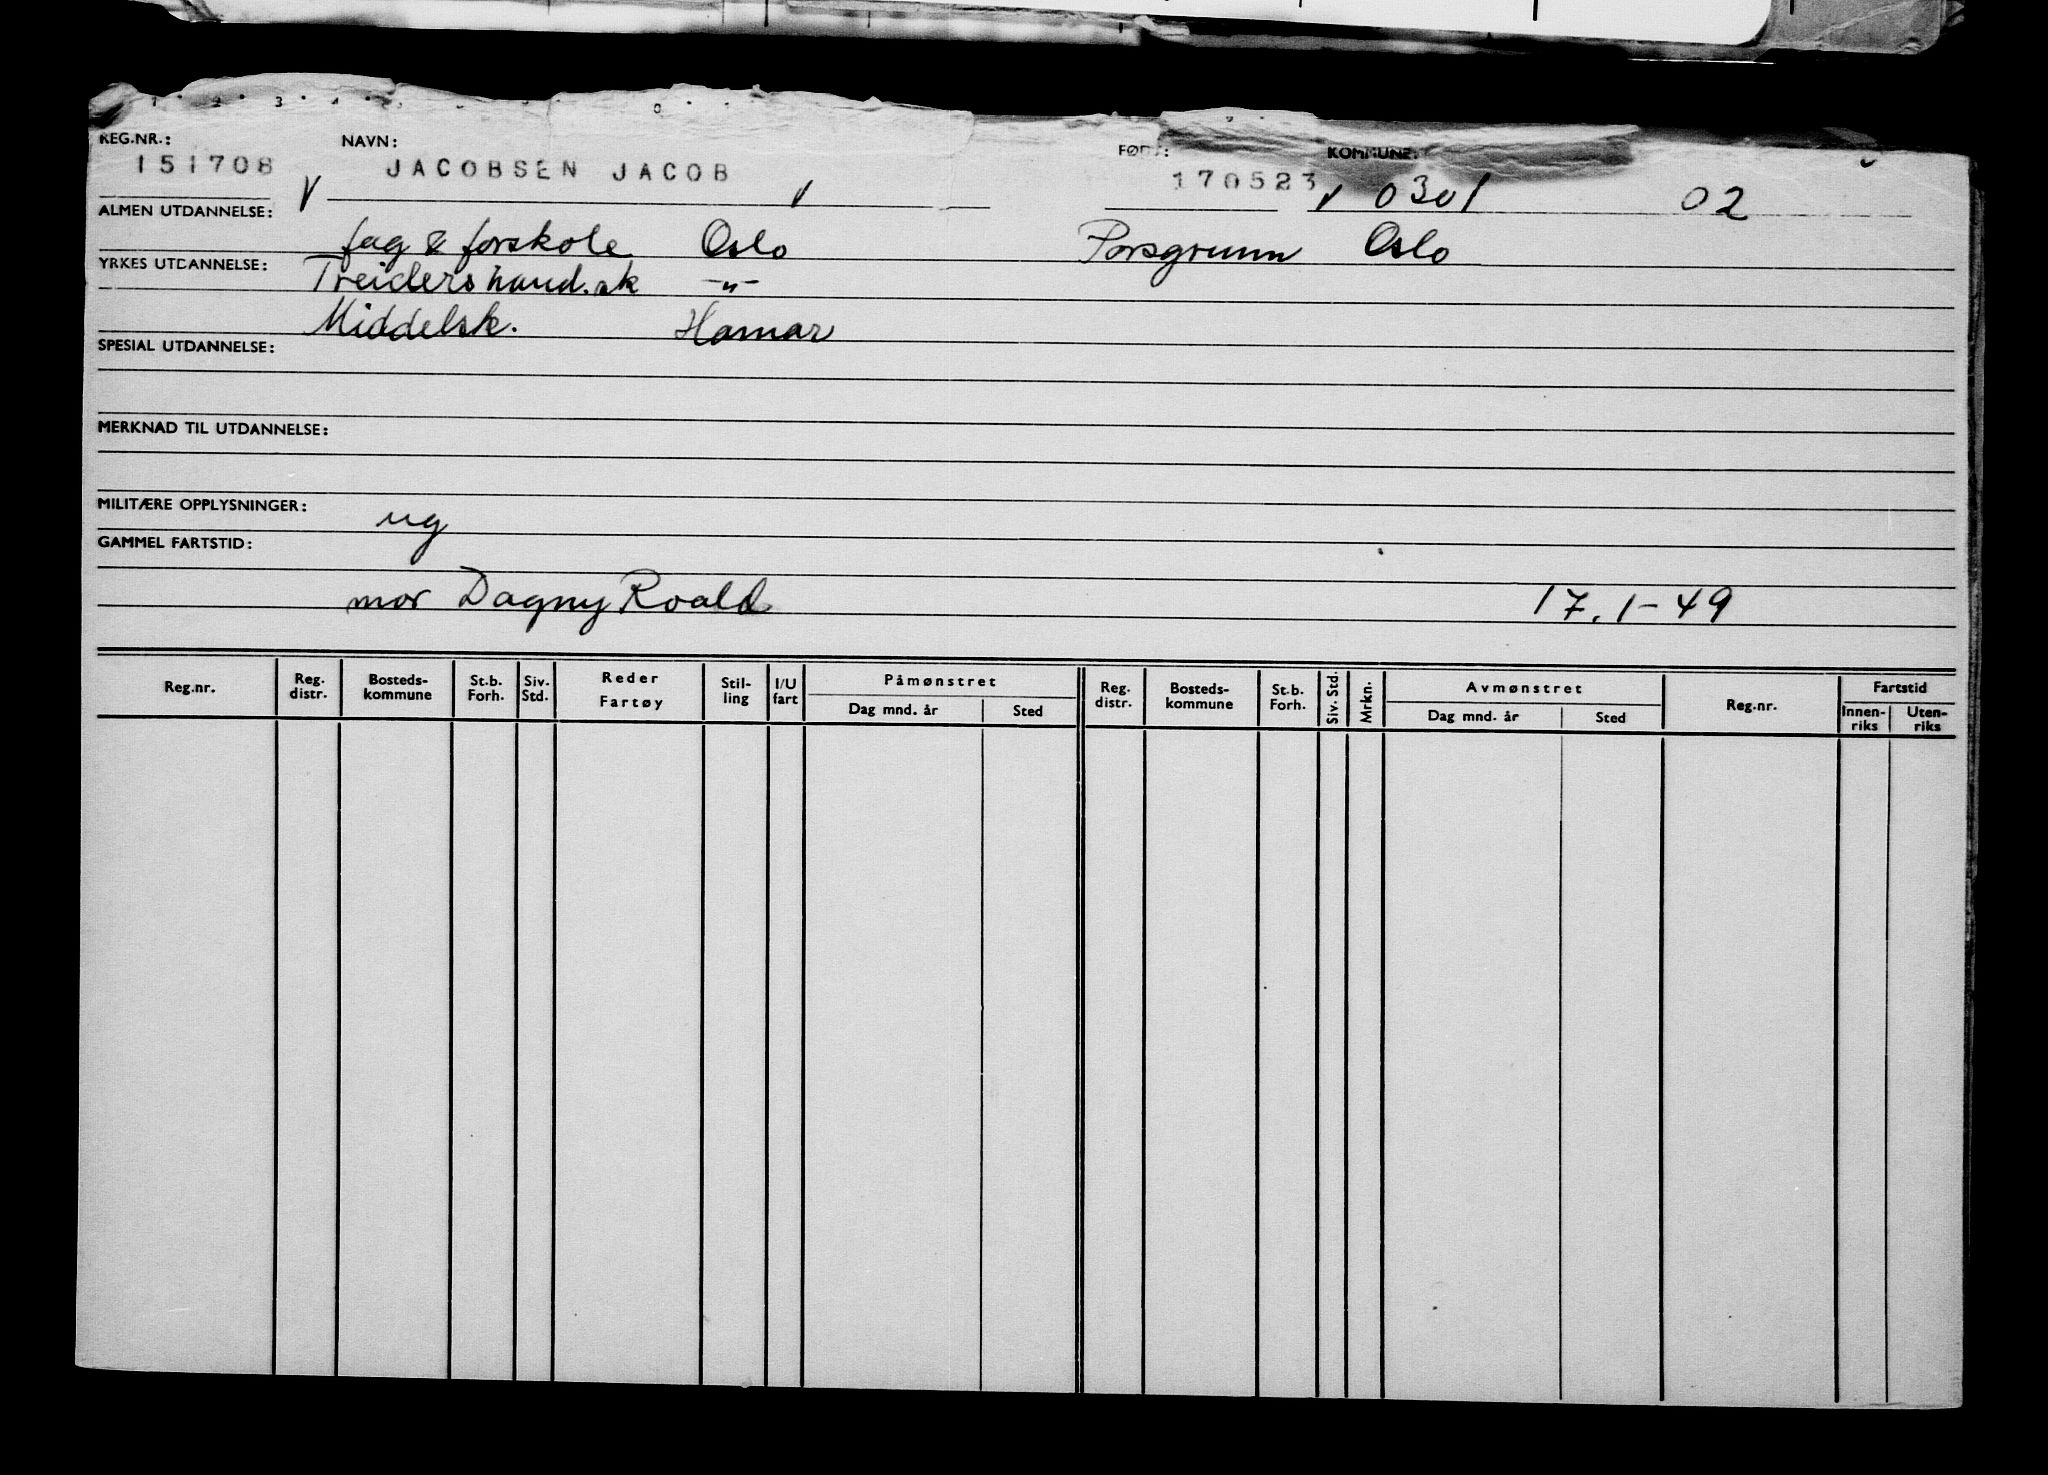 REG.NR.: NAVN: FØDT: KOMMUNE:
151708 JACOBSEN JACOB 170523 0301 02
ALMEN UTDANNELSE: fag & forskole Oslo Porsgrunn Oslo
YRKES UTDANNELSE: Treiders hand.sk —"—
Middelsk. Hamar
SPESIAL UTDANNELSE:
MERKNAD TIL UTDANNELSE:
MILITÆRE OPPLYSNINGER: ug
GAMMEL FARTSTID:
mor Dagny Roald 17.1-49
Reg.nr. Reg. distr. Bosteds-kommune St.b. Forh. Siv. Std. Reder Fartøy Stil-ling I/U fart Påmønstret Dag mnd. år Sted Reg. distr. Bosteds-kommune St.b. Forh. Siv. Std. Mrkn. Avmønstret Dag mnd. år Sted Reg.nr. Fartstid Innen-riks Uten-riks